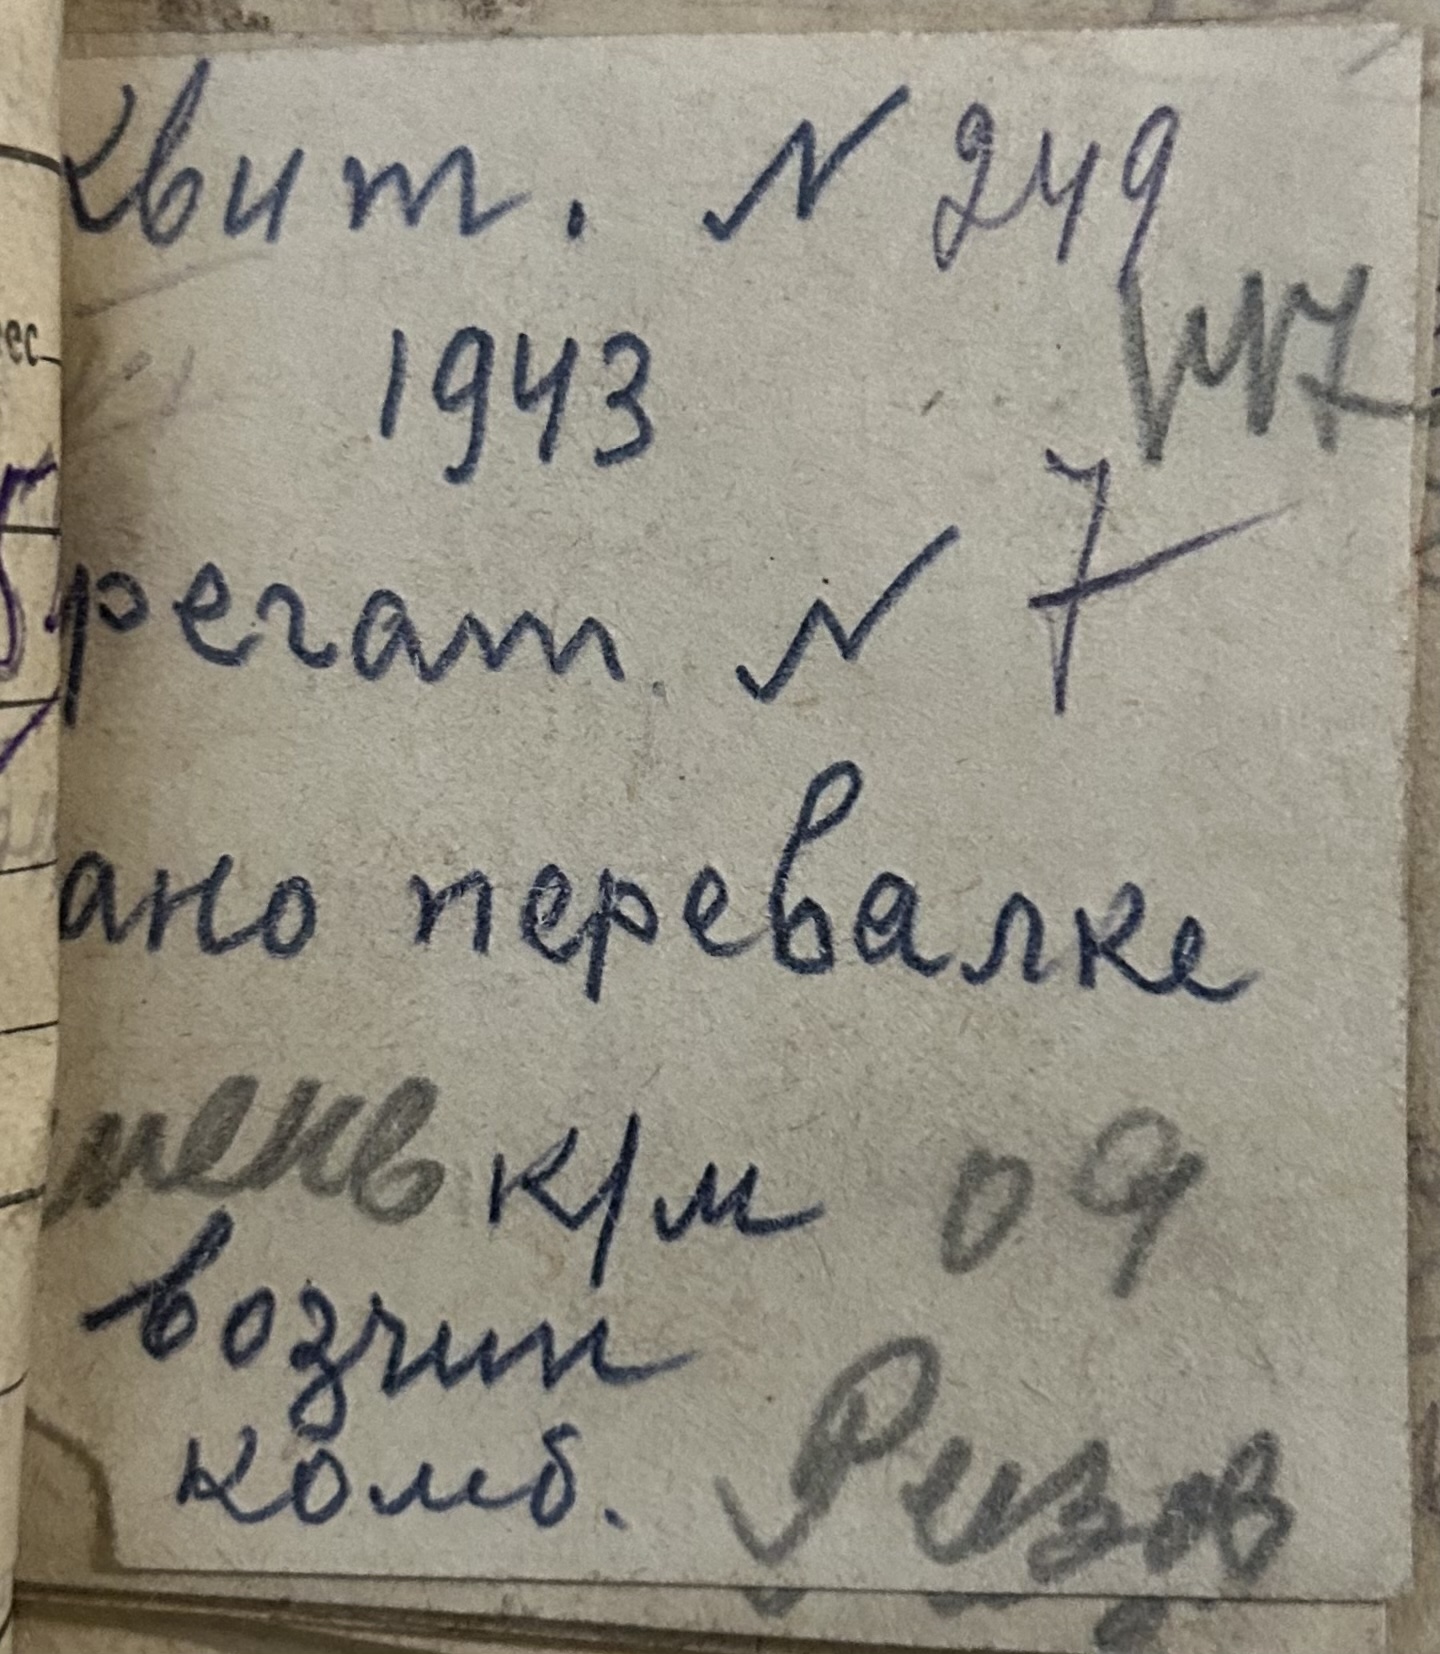 Квит. N 249
1943
регат N 7
ано перевалке
к/м 09
возчик
комб. Ризов